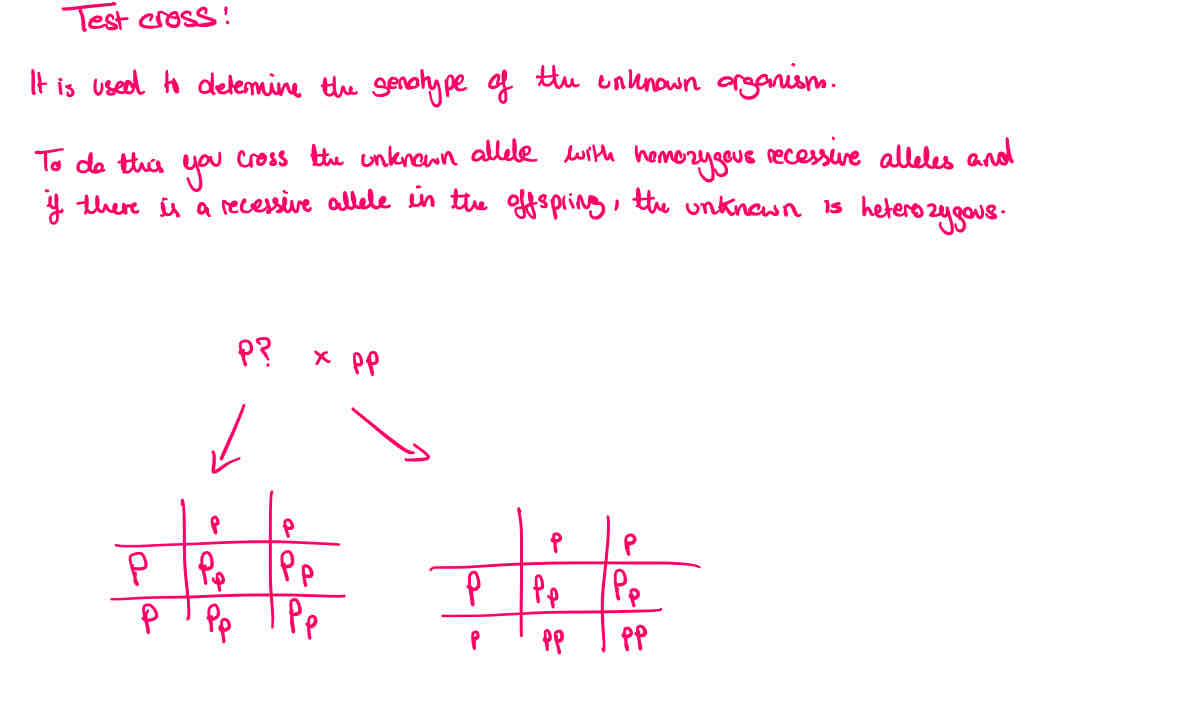 Test cross!
It is used to determine the genotype of the unknown organism.
To do this you cross the unknown allele with homozygous recessive alleles and
if there is a recessive allele in the offspring, the unknown is heterozygous.
P? x pp
p p
P Pp Pp
P Pp Pp
p p
P Pp Pp
p pp pp